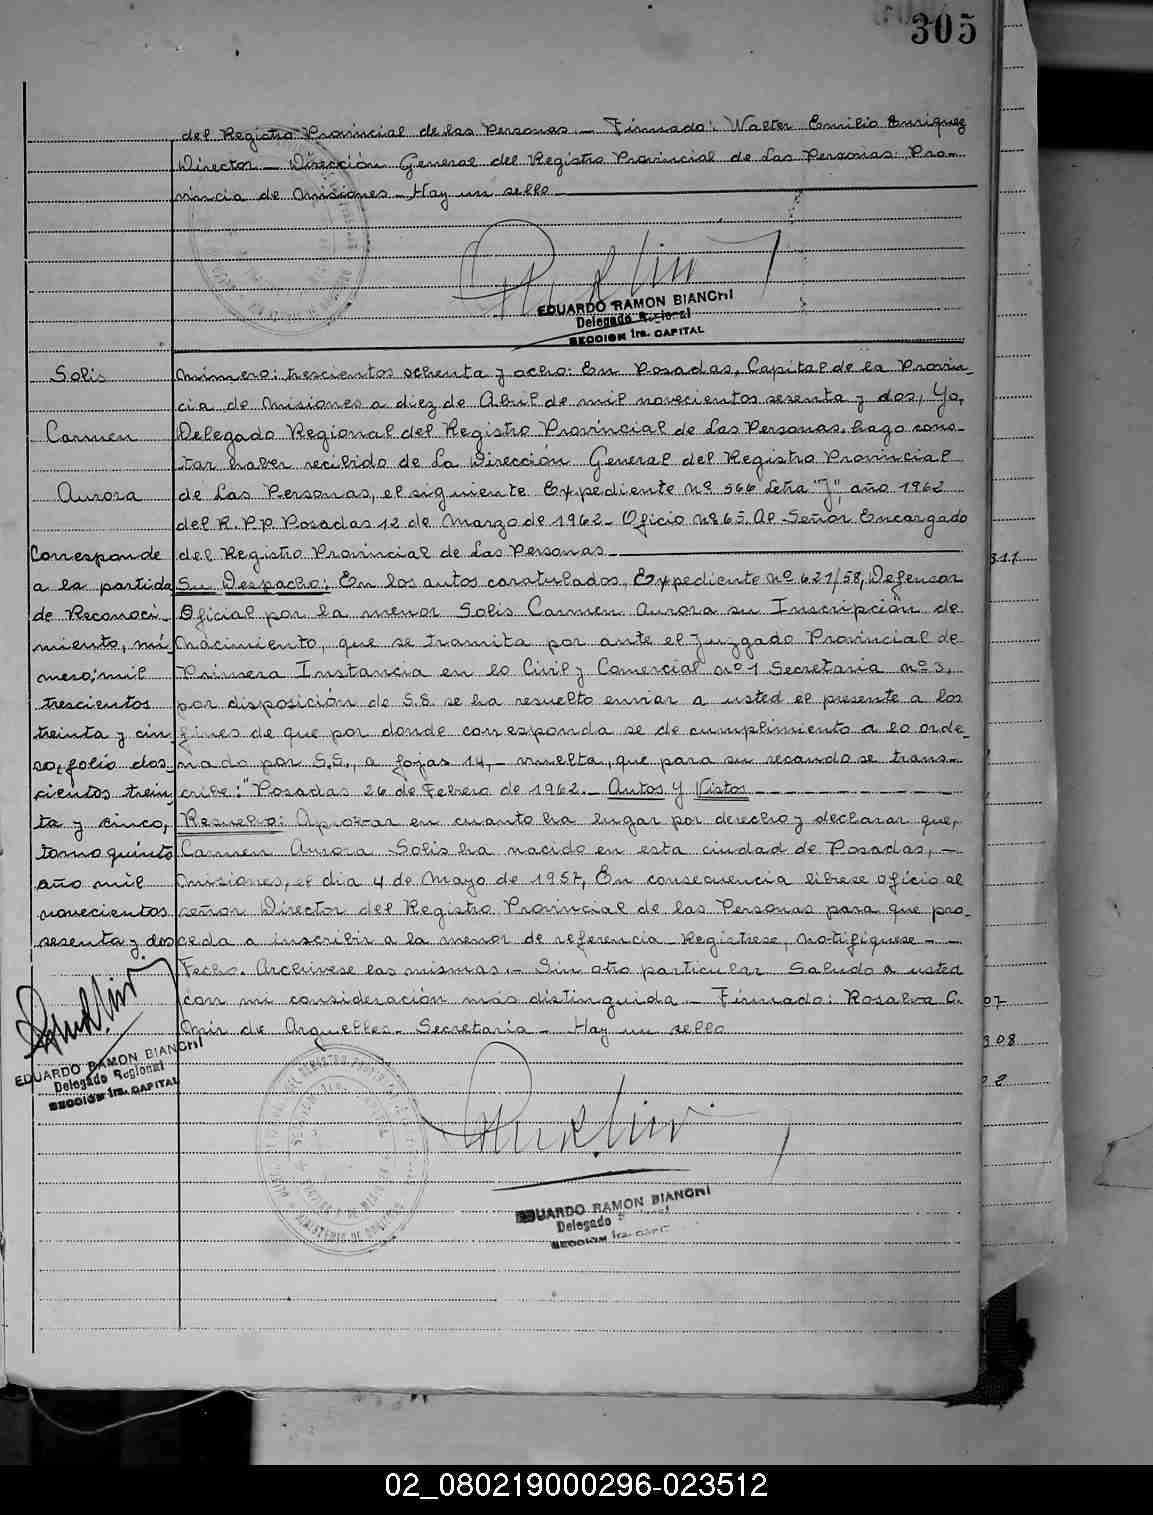 305
del Registro Provincial de las Personas — Firmado: Walter Emilio Enriquez
Director — Dirección General del Registro Provincial de Las Personas. Pro—
vincia de Misiones — Hay un sello
EDUARDO RAMON BIANCHI
Delegado Regional
SECCION 1ra. CAPITAL
Solis
Carmen
Aurora
Corresponde
a la partida
de Reconoci-
miento, nú
mero: mil
trescientos
treinta y cin
co, folio dos-
cientos trein
ta y cinco,
tomo quinto
año mil
novecientos
sesenta y dos
EDUARDO RAMON BIANCHI
Delegado Regional
SECCION 1ra. CAPITAL
Número: trescientos ochenta y ocho: En Posadas, Capital de la Provin-
cia de Misiones a diez de Abril de mil novecientos sesenta y dos, Yo,
Delegado Regional del Registro Provincial de Las Personas, hago cons-
tar haber recibido de La Dirección General del Registro Provincial
de Las Personas, el siguiente Expediente Nº 566 Letra "J", año 1962
del R.P.P. Posadas 12 de Marzo de 1962 — Oficio Nº 65. Al Señor Encargado
del Registro Provincial de Las Personas
Su Despacho: En los autos caratulados, Expediente Nº 621/58, Defensor
Oficial por la menor Solis Carmen Aurora su Inscripción de
Nacimiento, que se tramita por ante el Juzgado Provincial de
Primera Instancia en lo Civil y Comercial Nº 1 Secretaria Nº 3,
por disposición de S.S. se ha resuelto enviar a usted el presente a los
fines de que por donde corresponda se de cumplimiento a lo orde-
nado por S.S., a fojas 14, — vuelta, que para su recaudo se trans-
cribe: "Posadas 26 de Febrero de 1962. — Autos y Vistos
Resuelvo: Aprobar en cuanto ha lugar por derecho y declarar que,
Carmen Aurora Solis ha nacido en esta ciudad de Posadas, —
Misiones, el dia 4 de Mayo de 1957, En consecuencia librese oficio al
señor Director del Registro Provincial de las Personas para que pro-
ceda a inscribir a la menor de referencia — Registrese, notifiquese — —
Fecho. Archivese las mismas. — Sin otro particular Saludo a usted
con mi consideración más distinguida — Firmado: Rosalva C.
de Arguelles — Secretaria — Hay un sello
EDUARDO RAMON BIANCHI
Delegado
SECCION 1ra. CAPITAL
311
07
308
02_080219000296-023512